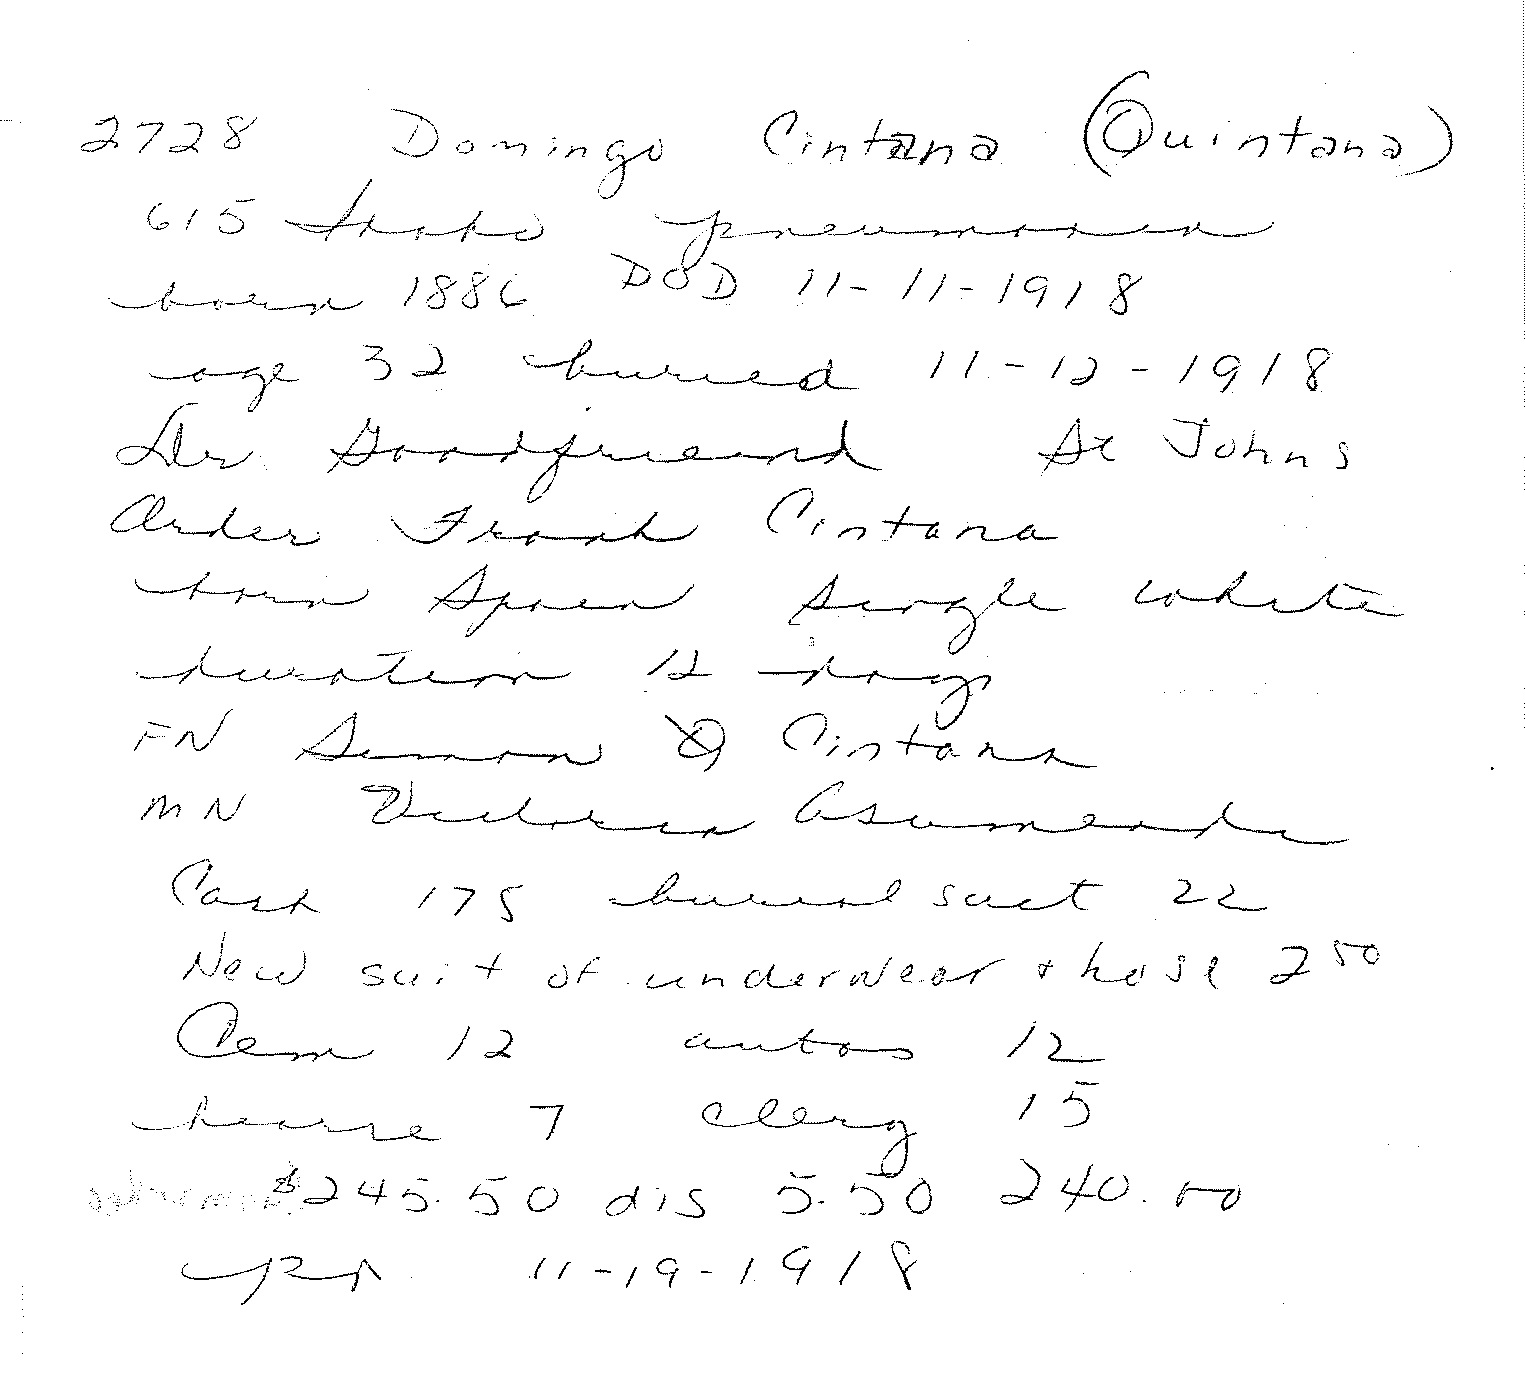 2728 Domingo Cintana (Quintana)
615 Idaho pneumonia
born 1886 DOD 11-11-1918
age 32 buried 11-12-1918
Dr Goodfriend St Johns
Order Frank Cintana
born Spain single white
duration 12 days
FN Simon Cintana
MN Victoria Asumendi
Cash 175 burial suit 22
New suit of underwear + hose 2 50
Cem 12 autos 12
hearse 7 clerg 15
$245.50 dis 5.50 240.00
pd 11-19-1918